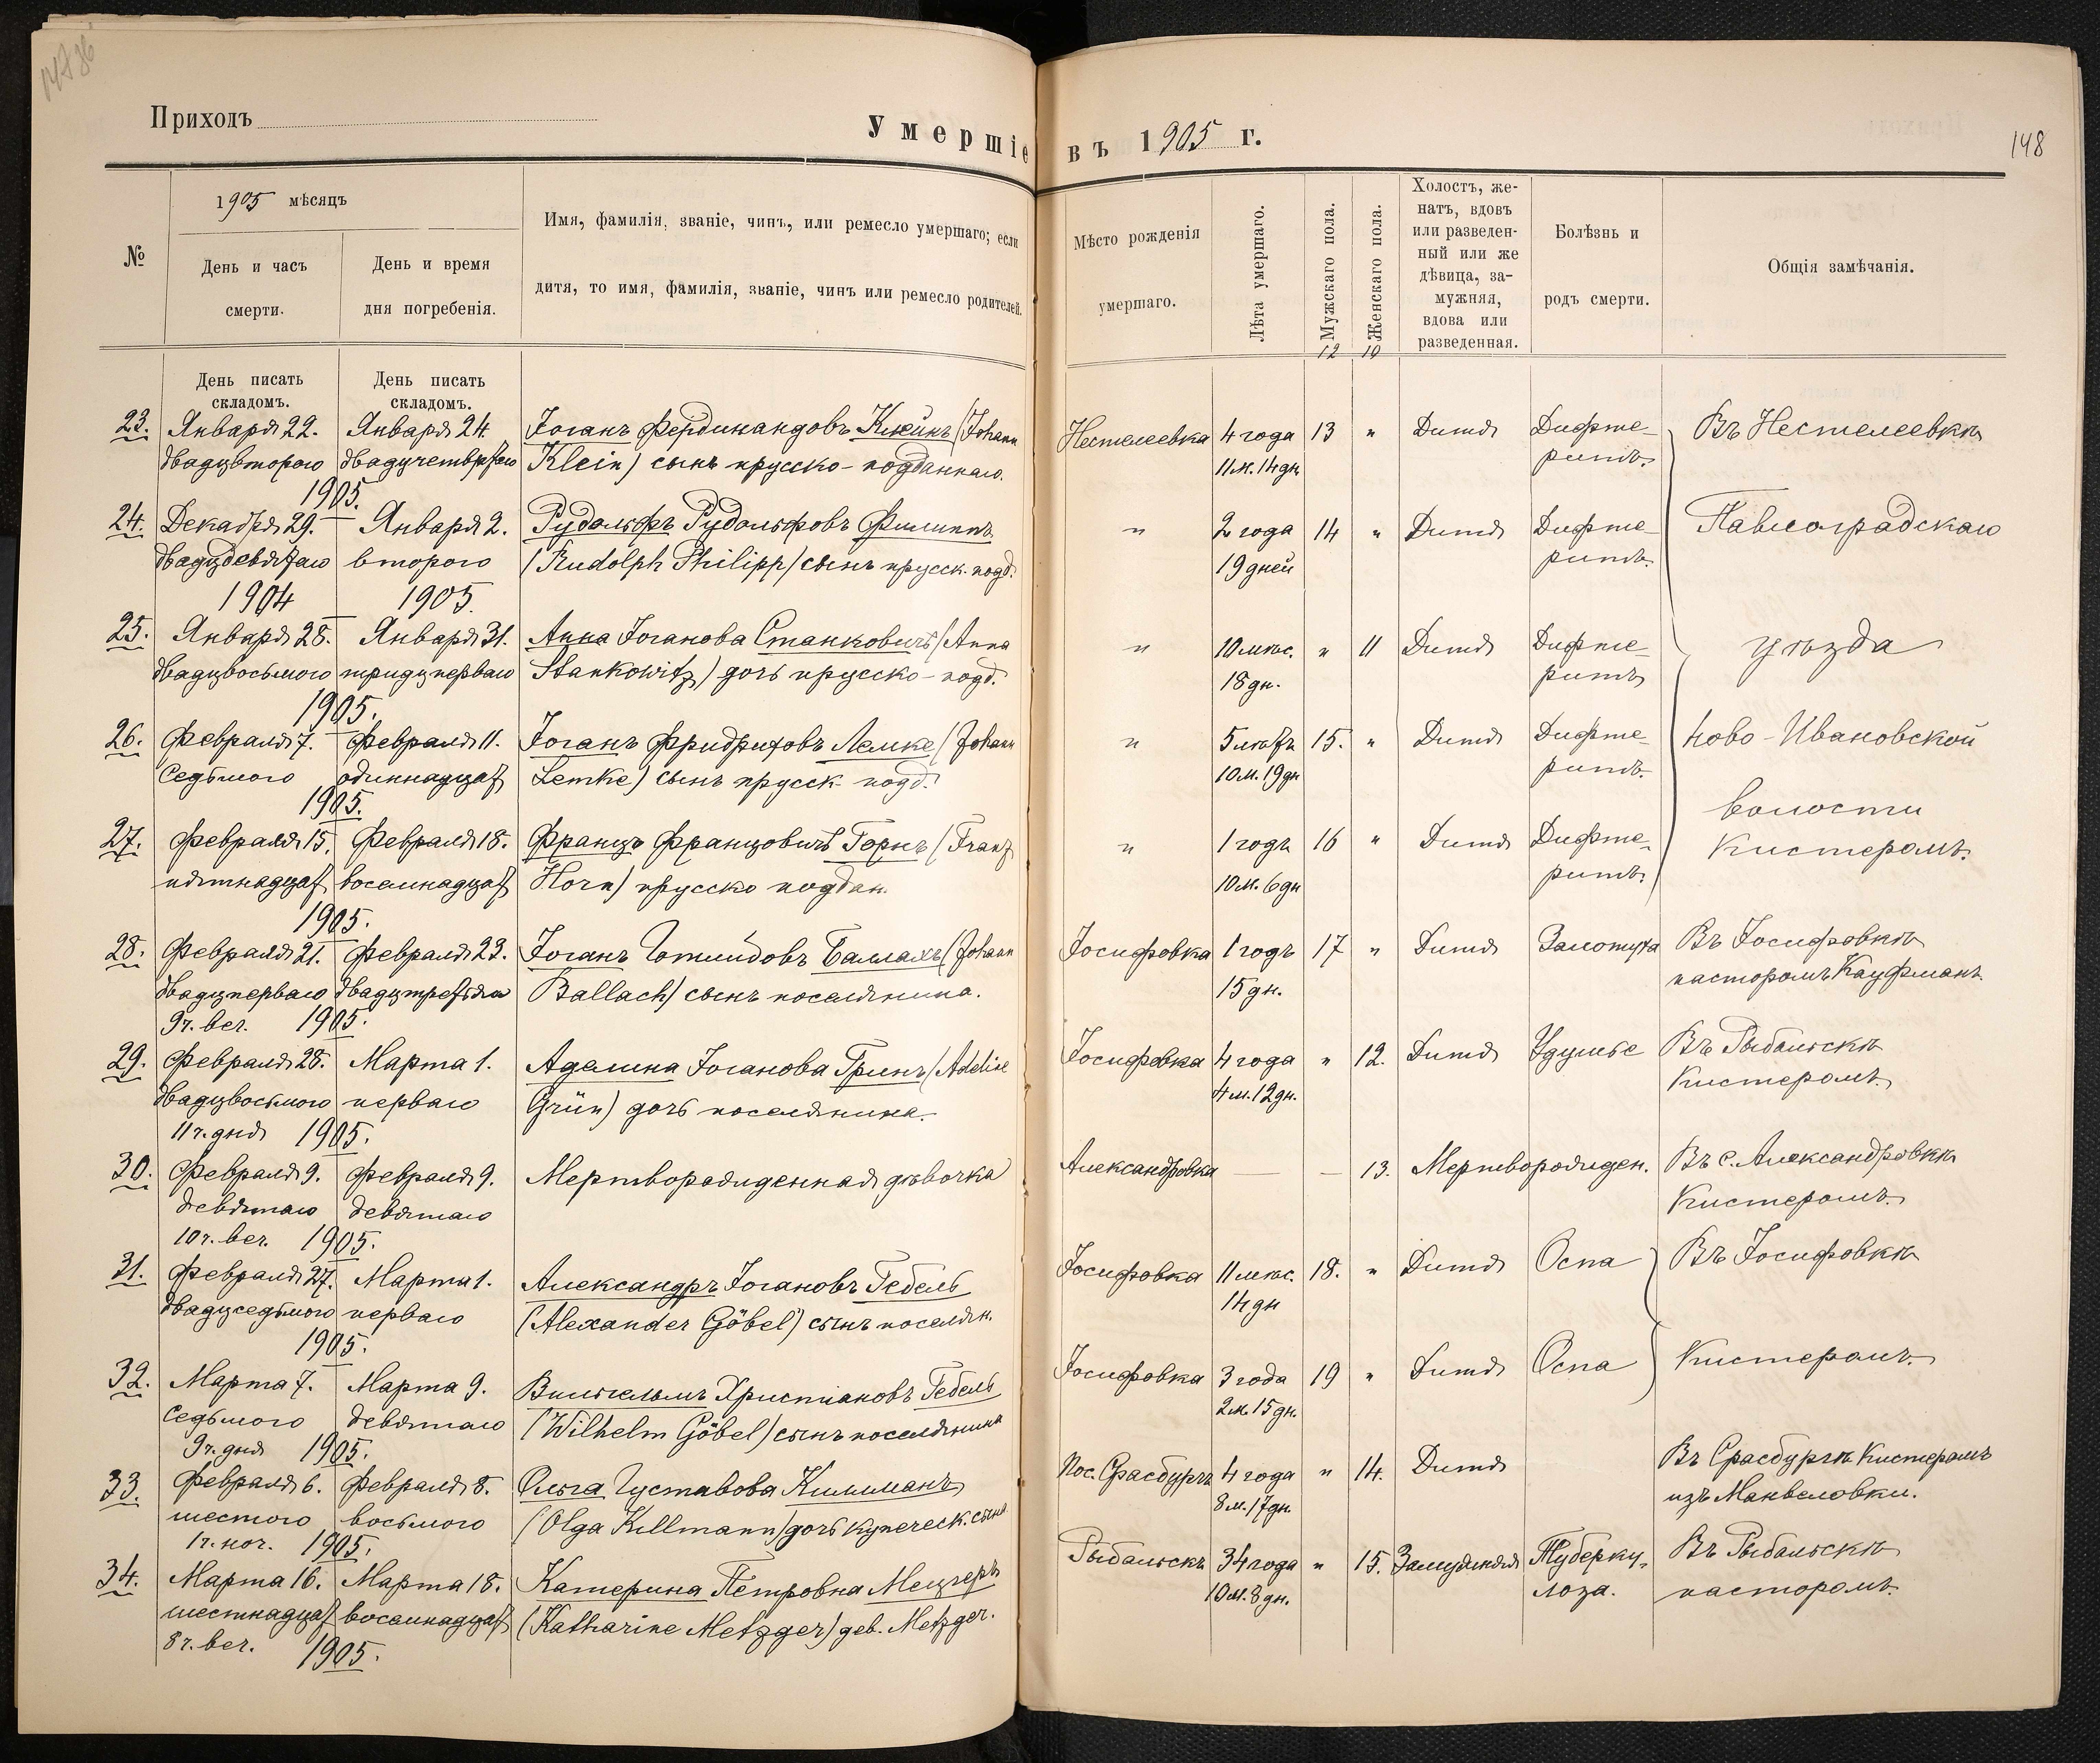 Приходъ
Умершіе
въ 1905 г.
148
1905 мѣсяцъ
№
День и часъ
смерти.
День и время
дня погребенія.
Имя, фамилія, званіе, чинъ, или ремесло умершаго; если
дитя, то имя, фамилія, званіе, чинъ или ремесло родителей.
Мѣсто рожденія
умершаго.
Лѣта умершаго.
Мужскаго пола.
Женскаго пола.
Холостъ, же-
натъ, вдовъ
или разведен-
ный или же
дѣвица, за-
мужняя,
вдова или
разведенная.
Болѣзнь и
родъ смерти.
Общія замѣчанія.
12 10
День писать
складомъ.
День писать
складомъ.
23. Января 22. Января 24. Іоганъ Фердинандовъ Клейнъ (Johann Нестелеевка 4 года 13 " Дитя Дифте- Въ Нестелеевкѣ
двадцвторого двадцчетвертаго Klein) сынъ прусско-подданнаго. 11 м. 14 дн. ритъ.
1905.
24. Декабря 29. Января 2. Рудольфъ Рудольфовъ Филиппъ " 2 года 14 " Дитя Дифте- Павлоградскаго
двадцдевятаго второго (Rudolph Philipp) сынъ прусск. подд. 19 дней ритъ.
1904 1905.
25. Января 28. Января 31. Анна Іоганова Станковичъ (Anna " 10 мѣс. " 11 Дитя Дифте- уѣзда
двадцвосьмого тридцперваго Stankowitz) дочь прусско-подд. 18 дн. ритъ
1905.
26. Февраля 7. Февраля 11. Іоганъ Фридрихов Лемке (Johann " 5 лѣтъ 15. " Дитя Дифте- Ново-Ивановской
седьмого одиннадцат Lemke) сынъ прусск. подд. 10 м. 19 дн ритъ.
1905. волости
27. Февраля 15. Февраля 18. Францъ Францовичъ Горнъ (Franz " 1 годъ 16 " Дитя Дифте- Кистеромъ.
пятнадцат восемнадцат Horn) прусско поддан. 10 м. 6 дн ритъ.
1905.
28. Февраля 21. Февраля 23. Іоганъ Готлибовъ Баллахъ (Johann Іосифовка 1 годъ 17 " Дитя Золотуха Въ Іосифовкѣ
двадцперваго двадцтретьяго Ballach) сынъ поселянина. 15 дн. пасторомъ Кауфманъ.
9 ч. веч. 1905.
29. Февраля 28. Марта 1. Аделина Іоганова Гринъ (Adeline Іосифовка 4 года " 12. Дитя Удушье Въ Рыбальскѣ
двадцвосьмого перваго Grün) дочь поселянина. 4 м. 12 дн. Кистеромъ.
11 ч. дня 1905.
30. Февраля 9. Февраля 9. Мертворожденная дѣвочка Александровка — — 13. Мертворожден. Въ с. Александровкѣ
девятаго девятаго Кистеромъ.
10 ч. веч. 1905.
31. Февраля 27. Марта 1. Александръ Іогановъ Гебель Іосифовка 11 мѣс. 18. " Дитя Оспа Въ Іосифовкѣ
двадцседьмого перваго (Alexander Göbel) сынъ поселян. 14 дн
1905.
32. Марта 7. Марта 9. Вильгельмъ Христіановъ Гебель Іосифовка 3 года 19 " Дитя Оспа Кистеромъ.
седьмого девятаго (Wilhelm Göbel) сынъ поселянина 2 м. 15 дн.
9 ч. дня 1905.
33. Февраля 6. Февраля 8. Ольга Густавова Килльманъ Пос. Срасбургъ 4 года " 14. Дитя Въ Срасбургѣ Кистеромъ
шестого восьмого (Olga Killmann) дочь купеческ. сына 8 м. 17 дн. изъ Манвеловки.
1 ч. ноч. 1905.
34. Марта 16. Марта 18. Катерина Петровна Мецгеръ Рыбальскъ 34 года " 15. Замужняя Туберку- Въ Рыбальскѣ
шестнадцат восемнадцат (Katharine Metzger) geb. Metzger. 10 м. 8 дн. лоза. пасторомъ.
8 ч. веч. 1905.